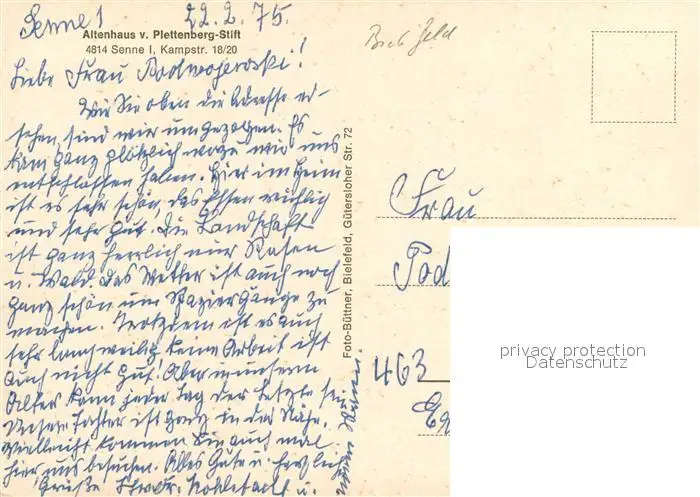 Senne 1 22.2.75.
Altenhaus v. Plettenberg-Stift
4814 Senne I, Kampstr. 18/20
Liebe Frau Podwojewski!
Wie Sie oben die Adresse er-
sehen, sind wir umgezogen. Es
kam ganz plötzlich wozu wir uns
entschlossen haben. Hier im Heim
ist es sehr schön, das Essen
und sehr gut. Die Landschaft
ist ganz herrlich nur Rasen
u. Wald. das Wetter ist auch noch
ganz schön um Spaziergänge zu
machen. Trotzdem ist es auch
sehr langweilig, keine Arbeit ist
auch nicht gut. Aber in unserem
Alter kann jeder Tag der letzte sein
Unsere Tochter ist ganz in der Nähe.
Vielleicht kommen Sie auch mal
hier uns besuchen. Alles Gute u. herzliche
Grüße
Foto-Büttner, Bielefeld, Gütersloher Str. 72
Bielefeld
Frau
Pod
463
privacy protection
Datenschutz